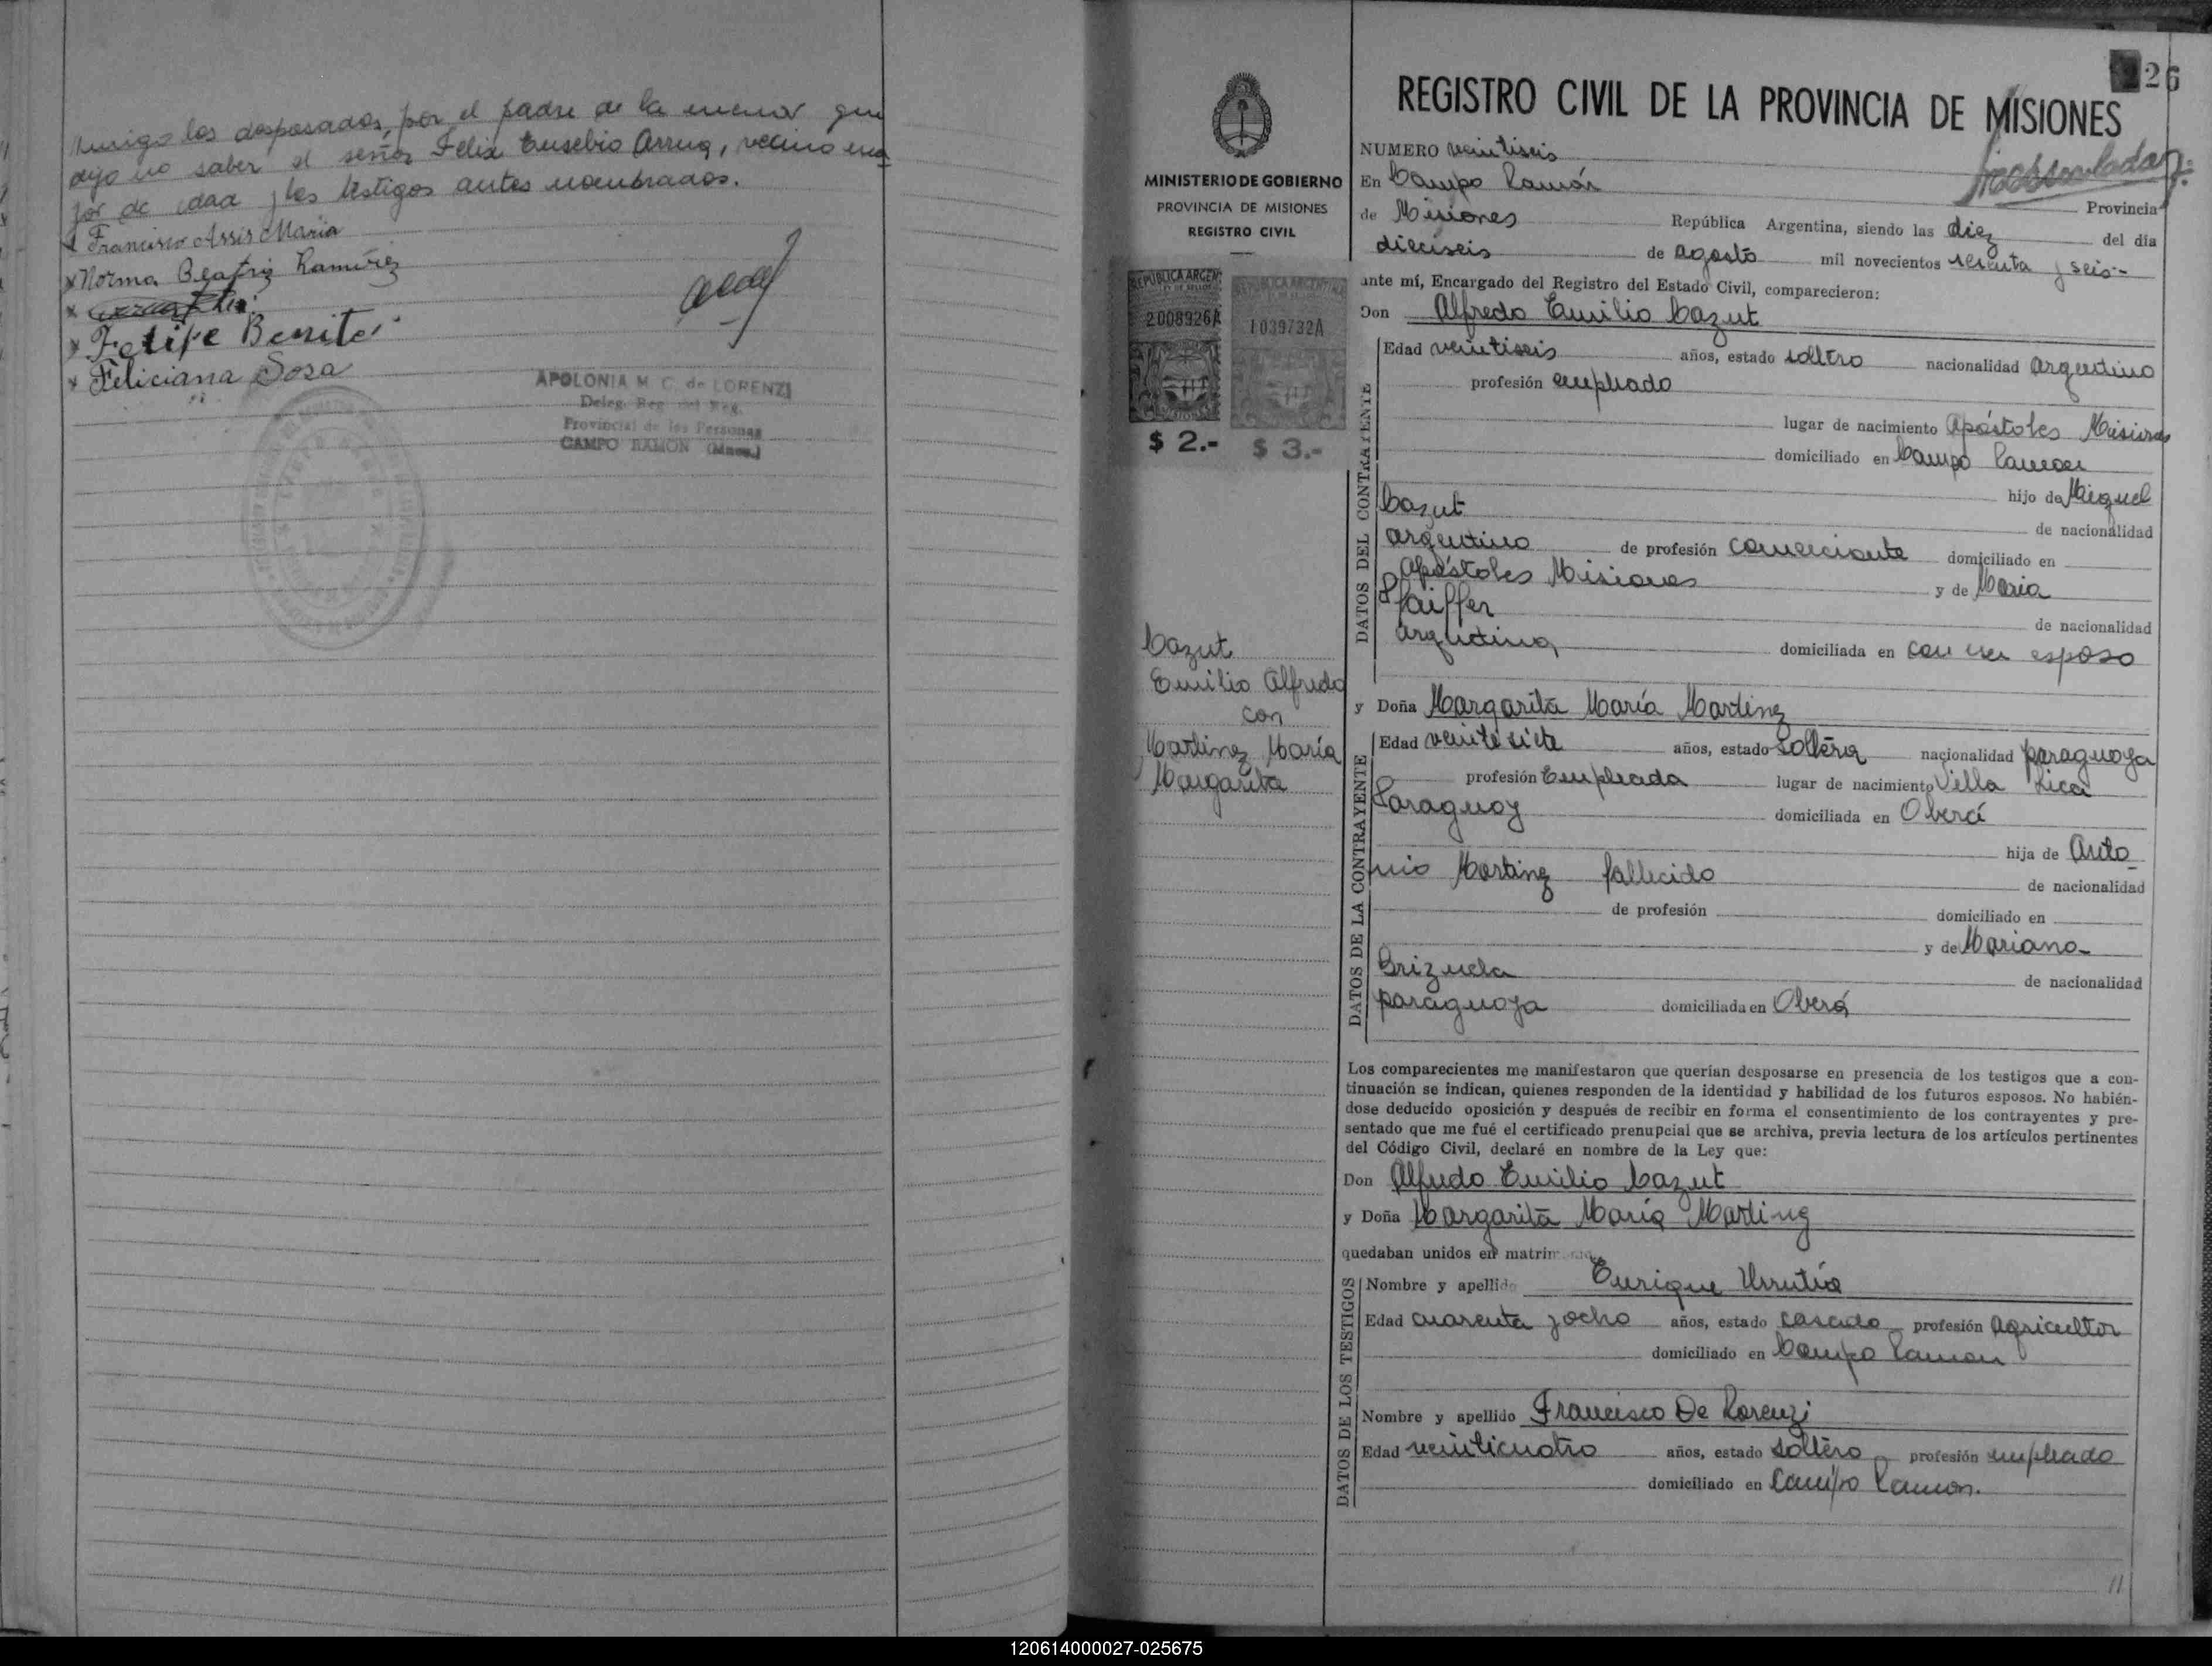 conmigo los desposados, por el padre de la menor que
dijo no saber el señor Felix Eusebio Arrua, vecino ma
yor de edad y los testigos antes nombrados.
x Francisco Assis Maria
x Norma Beatriz Ramírez
x
x Felipe Benite
x Feliciana Sosa
APOLONIA M. C. de LORENZI
Deleg. Reg. del Reg.
Provincial de las Personas
CAMPO RAMON (Mnes.)
26
REGISTRO CIVIL DE LA PROVINCIA DE MISIONES
MINISTERIO DE GOBIERNO
PROVINCIA DE MISIONES
REGISTRO CIVIL
REPUBLICA ARGEN
2008926A
$ 2.-
REPUBLICA ARGENTINA
1039732A
$ 3.-
Cazut
Emilio Alfredo
con
Martinez María
Margarita
NUMERO veintiseis
En Campo Ramón
Provincia
de Misiones República Argentina, siendo las diez del día
dieciseis de agosto mil novecientos sesenta y seis-
ante mí, Encargado del Registro del Estado Civil, comparecieron:
Don Alfredo Emilio Cazut
DATOS DEL CONTRAYENTE
Edad veintiseis años, estado soltero nacionalidad argentino
profesión empleado
lugar de nacimiento Apóstoles Misiones
domiciliado en Campo Ramon
hijo de Miguel
Cazut de nacionalidad
argentino de profesión comerciante domiciliado en
Apóstoles Misiones y de Maria
Pfaiffer de nacionalidad
argentina domiciliada en con su esposo
y Doña Margarita María Martinez
DATOS DE LA CONTRAYENTE
Edad veintesiete años, estado soltera nacionalidad paraguaya
profesión Empleada lugar de nacimiento Villa Rica
Paraguay domiciliada en Oberá
hija de Anto-
nio Martinez fallecido de nacionalidad
de profesión domiciliado en
y de Mariana
Brizuela de nacionalidad
paraguaya domiciliada en Oberá
Los comparecientes me manifestaron que querían desposarse en presencia de los testigos que a con-
tinuación se indican, quienes responden de la identidad y habilidad de los futuros esposos. No habién-
dose deducido oposición y después de recibir en forma el consentimiento de los contrayentes y pre-
sentado que me fué el certificado prenupcial que se archiva, previa lectura de los artículos pertinentes
del Código Civil, declaré en nombre de la Ley que:
Don Alfredo Emilio Cazut
y Doña Margarita María Martinez
quedaban unidos en matrimonio
DATOS DE LOS TESTIGOS
Nombre y apellido Enrique Urrutia
Edad cuarenta y ocho años, estado casado profesión agricultor
domiciliado en Campo Ramon
Nombre y apellido Francisco De Lorenzi
Edad veinticuatro años, estado soltero profesión empleado
domiciliado en Campo Ramon.
11
120614000027-025675